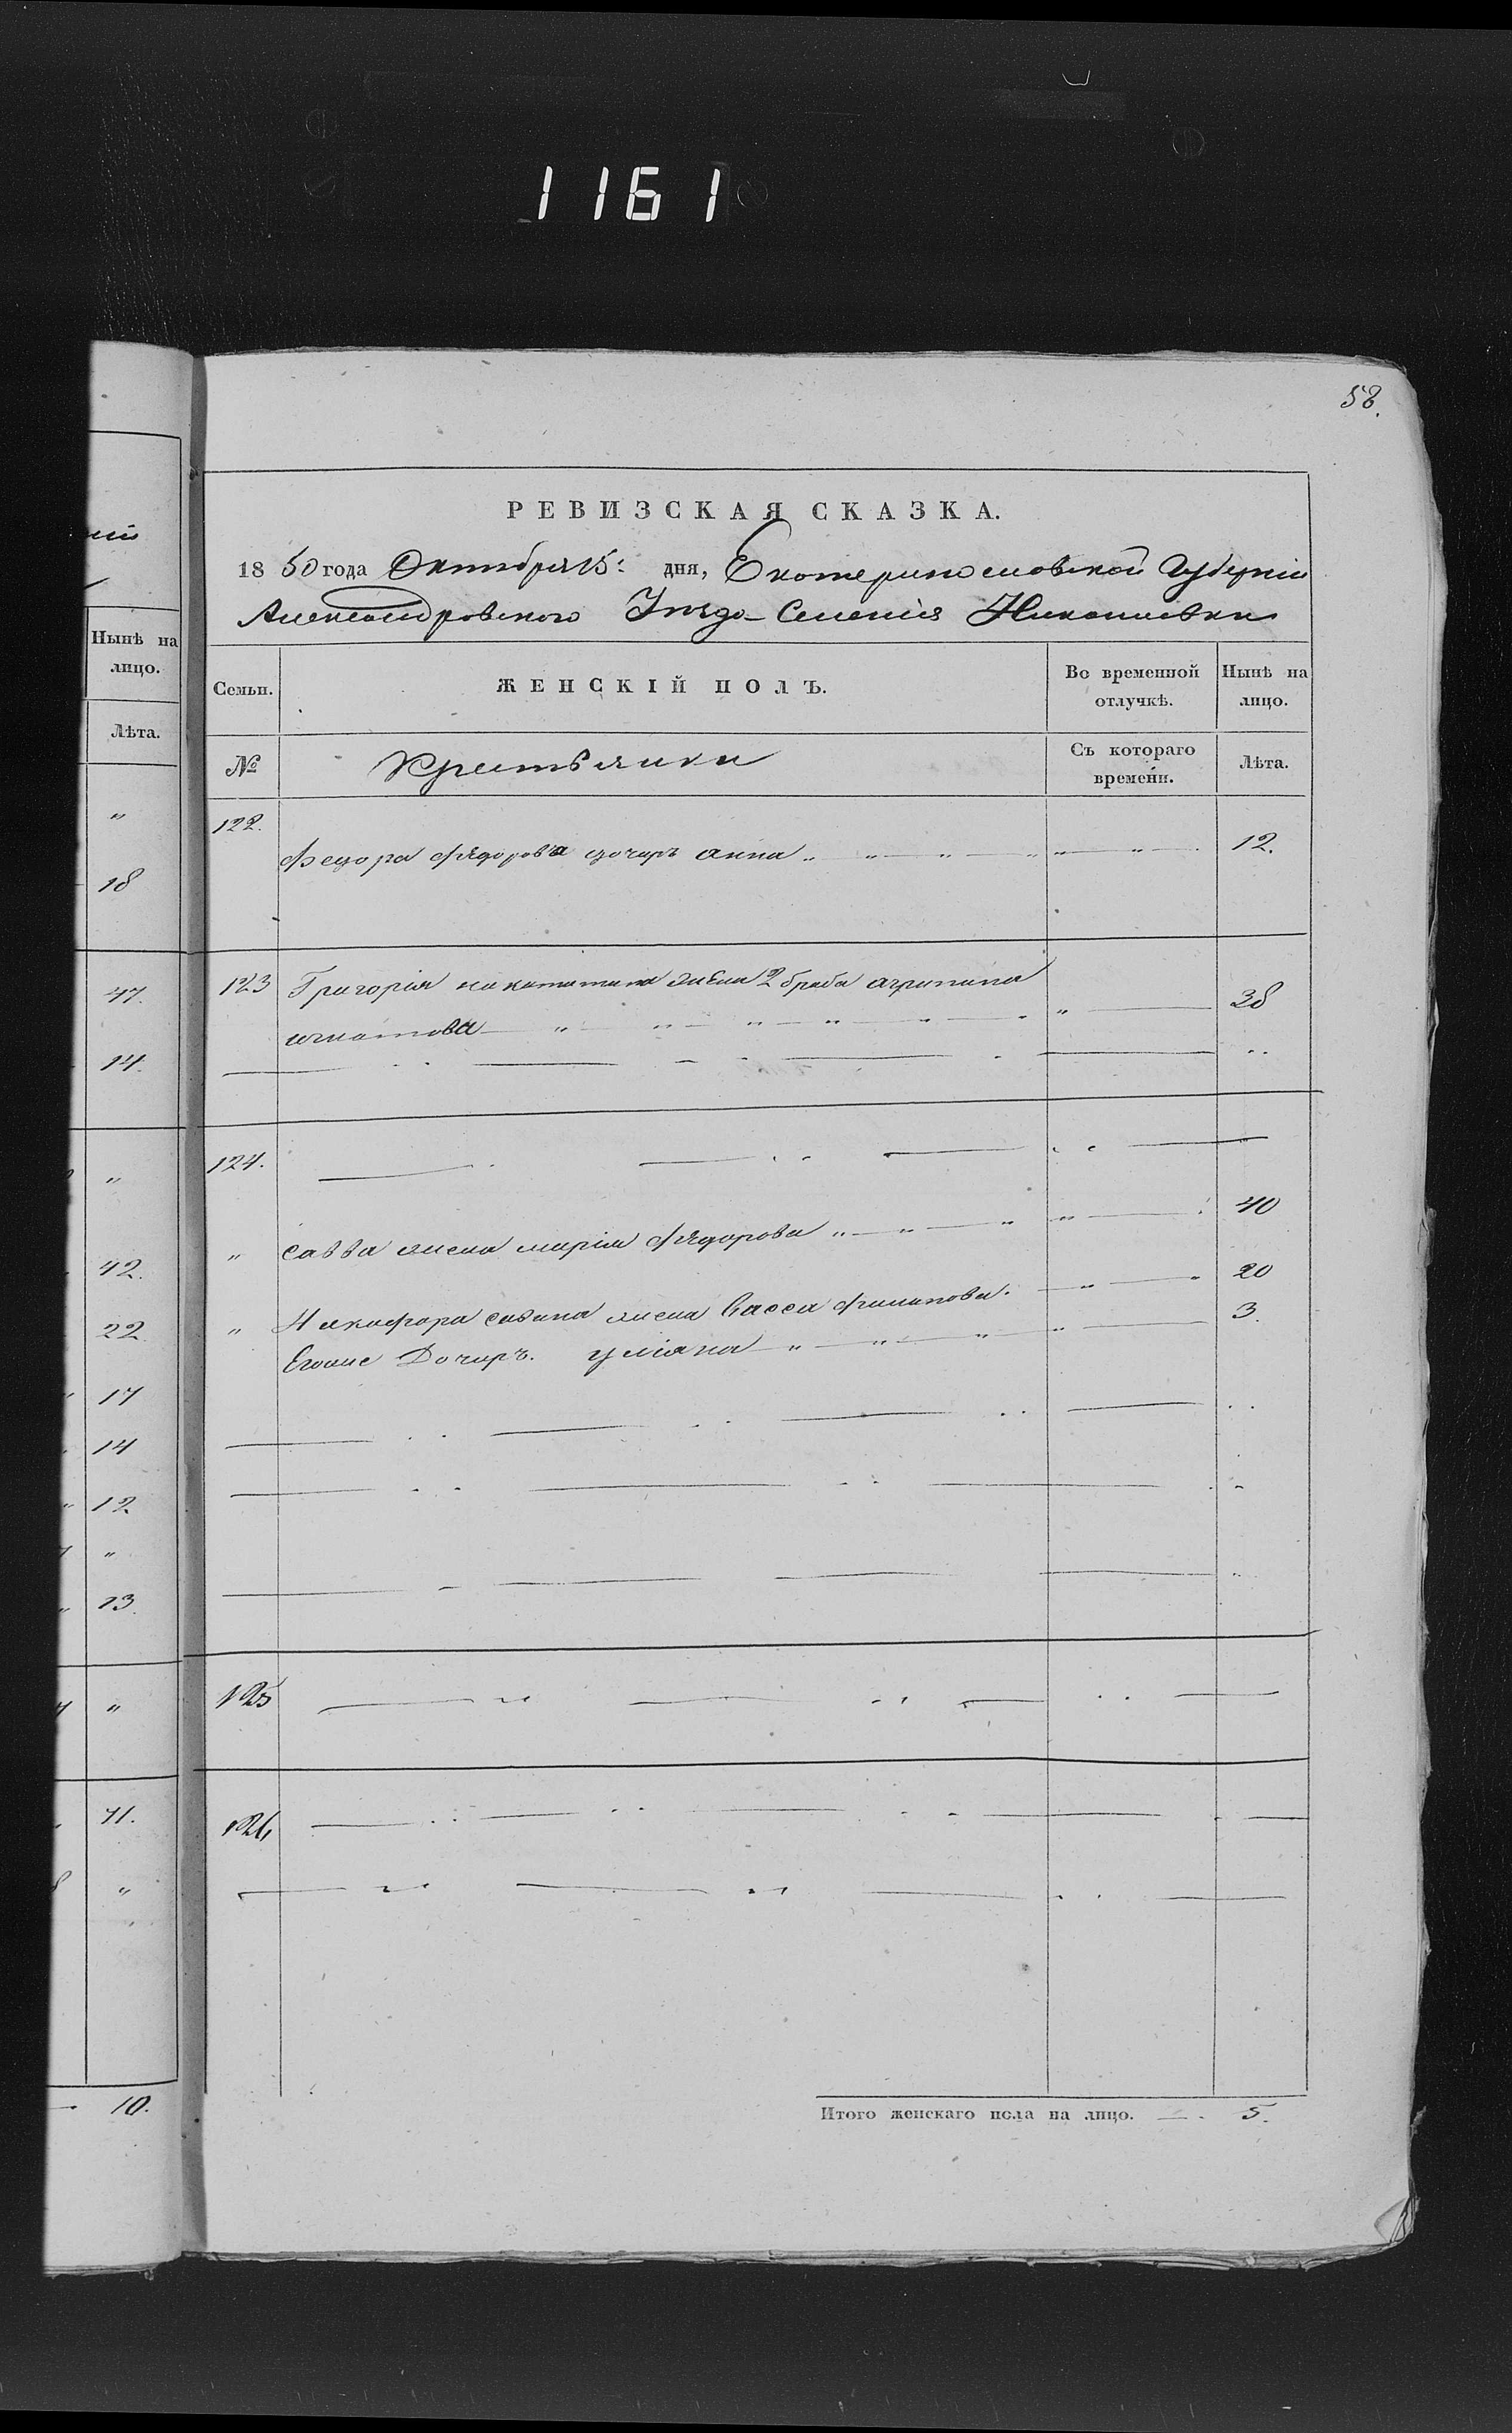 1161
58.
ній
Нынѣ на
лицо.
Лѣта.
"
18
47.
14.
"
42.
22.
17
14
12
"
13.
"
71.
"
10.
РЕВИЗСКАЯ СКАЗКА.
1850 года Октября 15: дня, Екатеринославской Губерніи
Александровского Уезда Селенія Николаевки
Семьи. ЖЕНСКІЙ ПОЛЪ. Во временной отлучкѣ. Нынѣ на лицо.
№ Крестьянки Съ котораго времени. Лѣта.
122. Федора Фядорова дочирь анна " " " " " " 12.
123 Григорія никитина жена 2 брака агрипина
игнатова " " " " " " " 38
124.
" савва жена марія Фядорова " " " " 40
" Никифора савина жена Васса филипова. " " 20
Егоже Дочирь. уліяна " " " " 3.
125
126
Итого женскаго пола на лицо. 5.